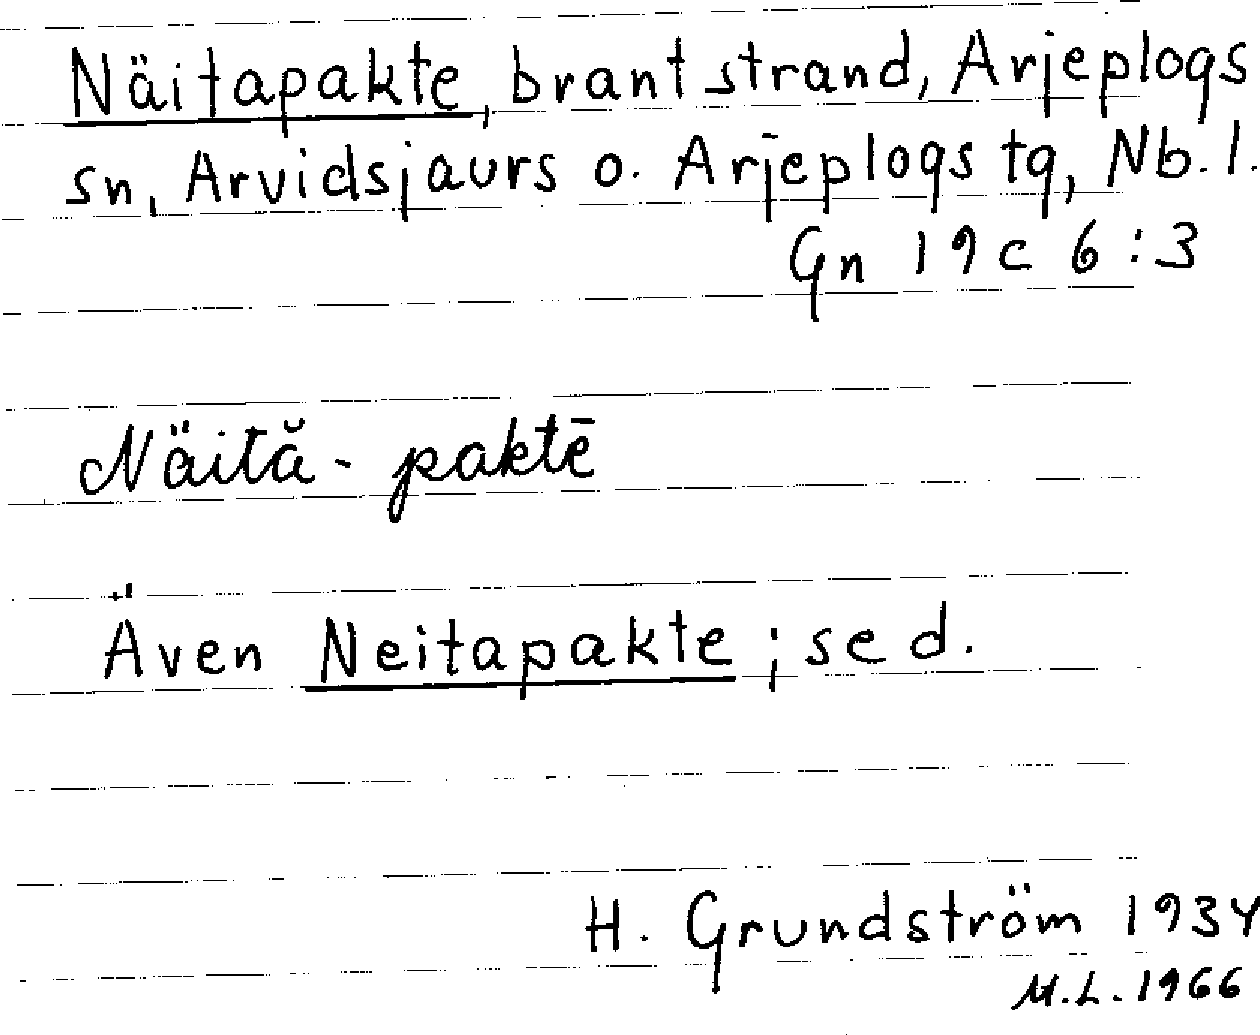 Näitapakte, brant strand, Arjeplogs
sn, Arvidsjaurs o. Arjeplogs tg, Nb. l.
Gn 19c 6:3
Näită - paktē
Även Neitapakte; se d.
H. Grundström 1934
M.L. 1966